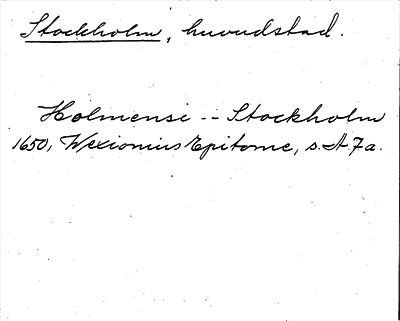 Stockholm, huvudstad.
Holmensi -- Stockholm
1650, Wexionius Epitome, s. A 7 a.